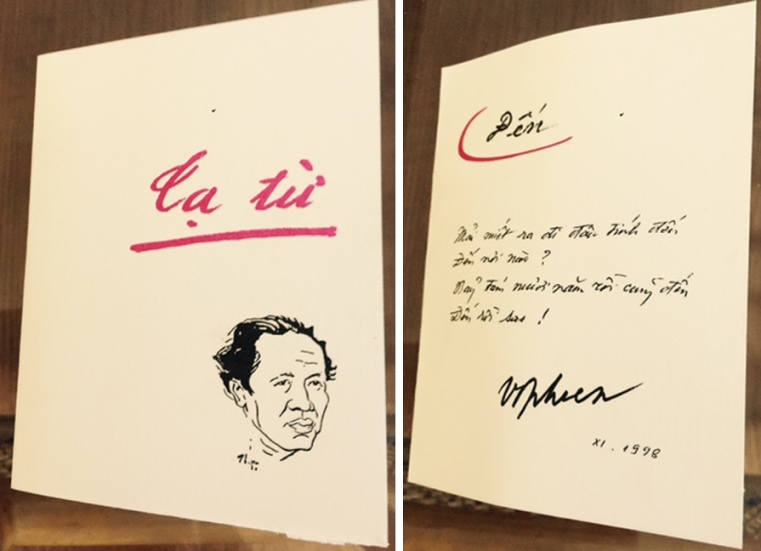 Tạ từ
Đến
Mải miết ra đi đâu tính đến
Đến nơi nào ?
Nay tám mươi năm rồi cũng đến
Đến rồi sao !
Võphiến
XI . 1998